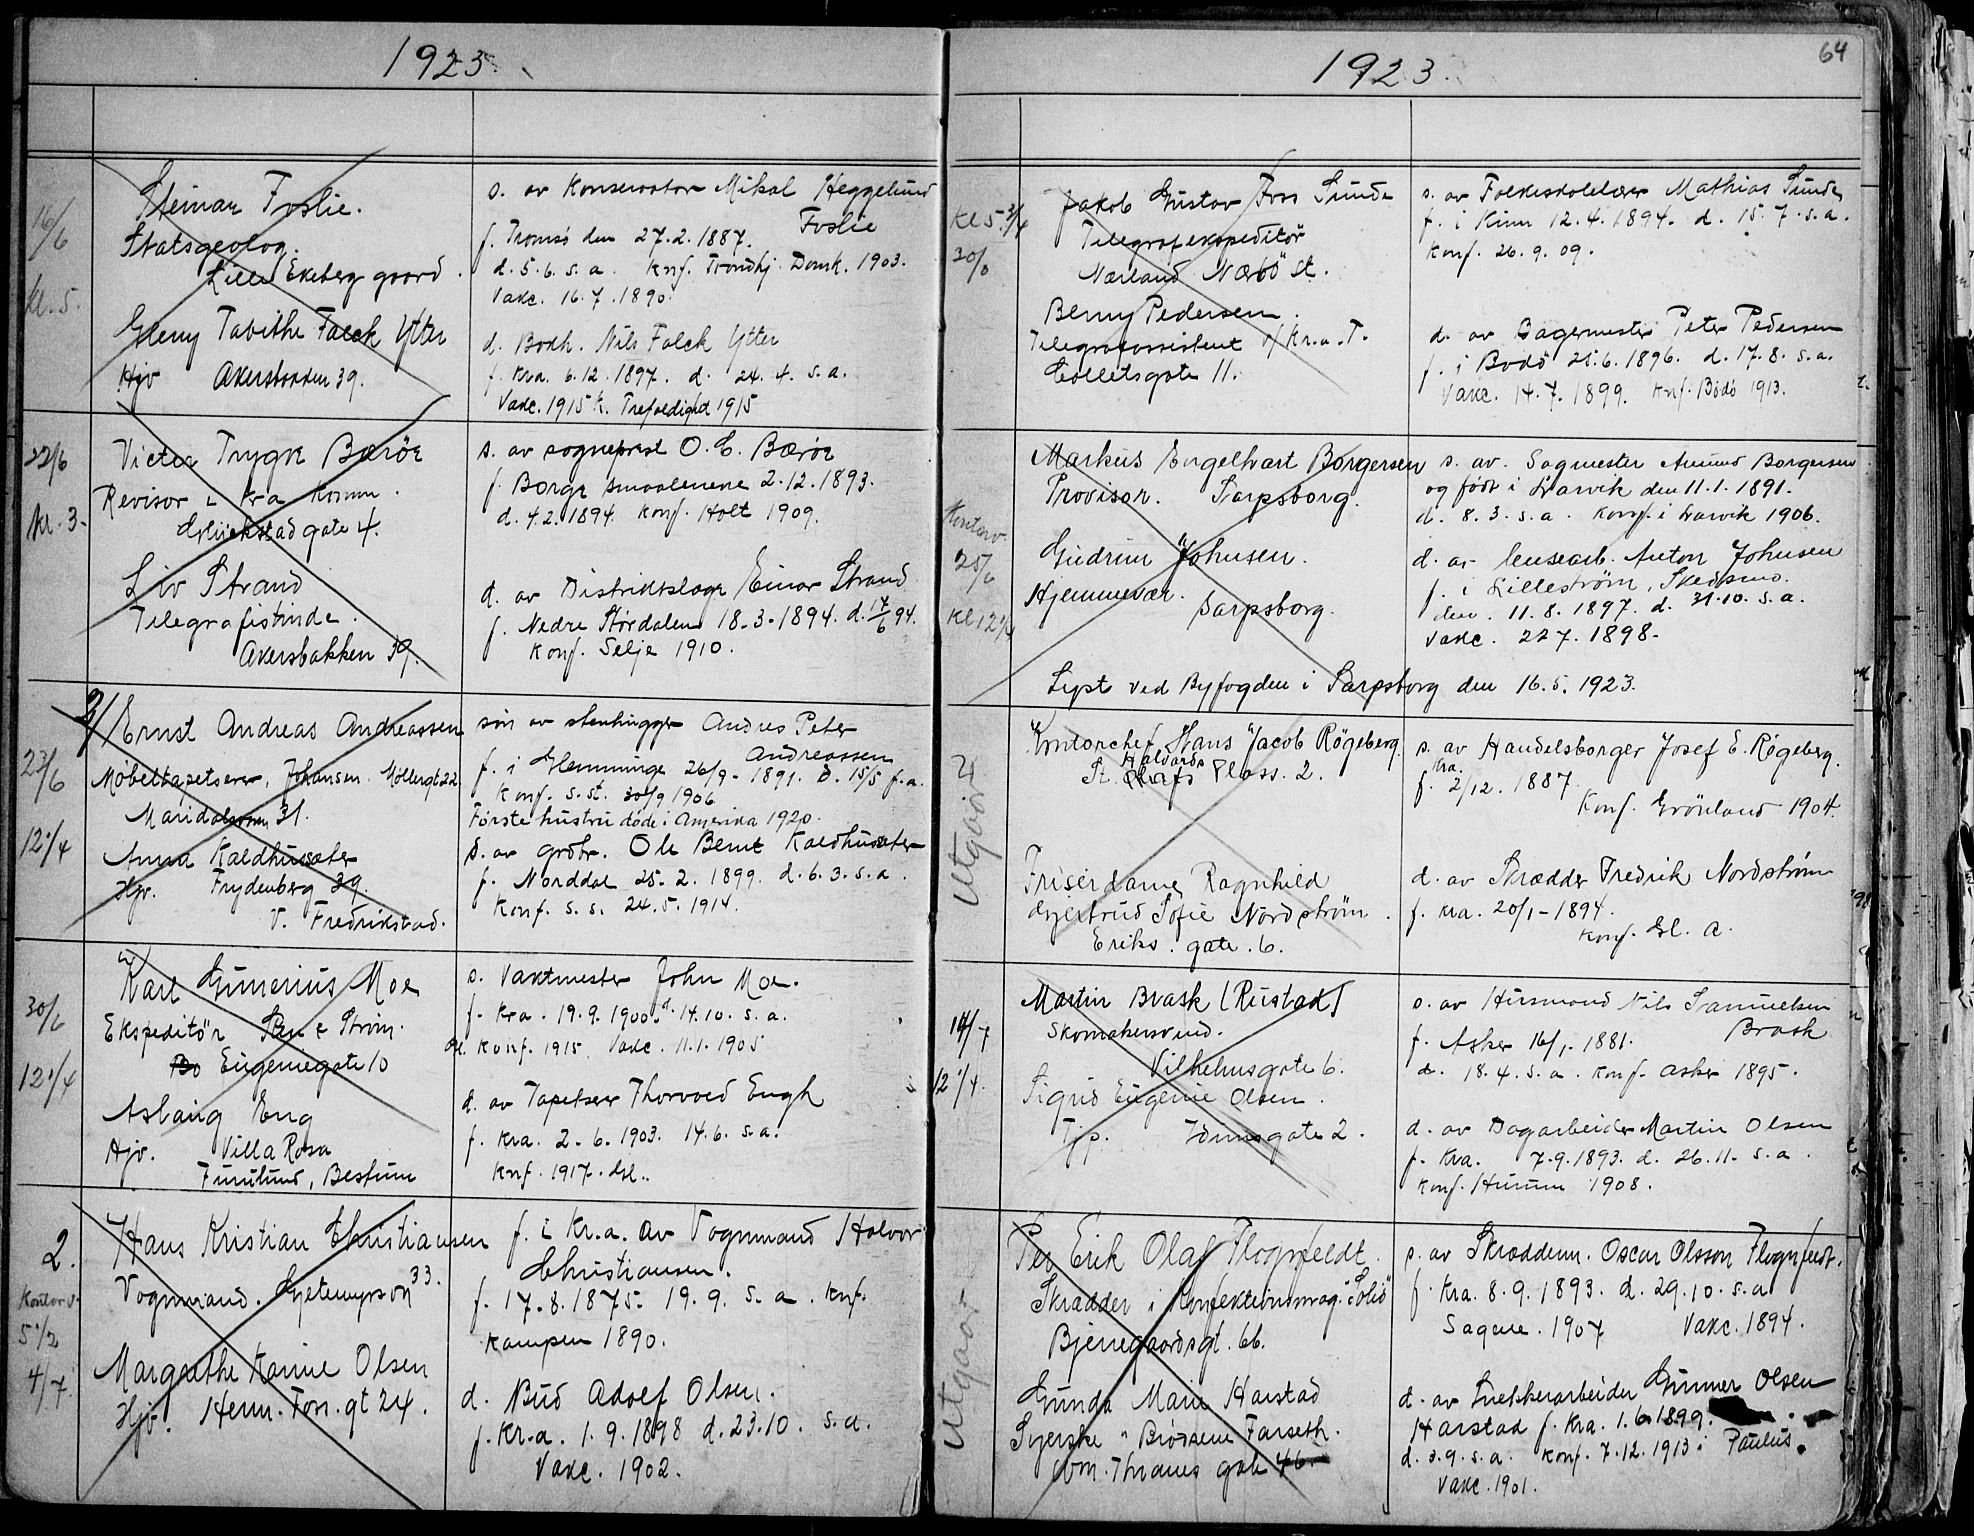 1923.
16/6
kl. 5.
Steinar Foslie.
Statsgeolog.
Lille Ekeberg gaard.
Tabithe Falck Ytter
Hjv Akersbakken 39.
s. av Konservator Mikal Heggelund
Foslie
f. Tromsø den 27.2.1887.
d. 5.6. s.a. Knf. Trondhj. Domk. 1903.
Vakc. 16.7.1890.
d. Bodh. Nils Falck Ytter
f. Kra. 6.12.1897. d. 24.4. s.a.
Vakc. 1915 K. Trefoldighet 1915
22/6
kl. 3.
Victor Trygve Bærøe
Revisor i Kra komm.
Glückstadgate 4.
Liv Strand
Telegrafistinde.
Akersbakken 39.
s. av sogneprest O. C. Bærøe
f. Borge Smaalenene 2.12.1893.
d. 4.2.1894. Konf. Holt 1909.
d. av Distriktslæge Einar Strand
f. Nedre Stördalen 18.3.1894. d. 17/6 94.
Konf. Selje 1910.
23/6
12 1/4
2/ Ernst Andreas Andreassen
Møbeltapetserer, Johansen Møllergt 22
Maridalsveien 31.
Anna Kaldhussæter
Hjv. Frydenberg 39.
V. Fredrikstad.
søn av stenhugger Andres Peter
Andreassen
f. i Glemminge 26/9-1891. D. 15/5 f.a.
Konf. s. st. 30/9 1906
Første hustru døde i Amerika 1920.
d. av grdbr. Ole Bernt Kaldhussæter
f. Norddal 25.2.1899. d. 6.3. s.a.
Konf. s. s. 24.5.1914.
30/6
12 1/4
Karl Gunerius Moe
Ekspeditør Steen & Strøm.
Bo Eugeniegate 10
Aslaug Eng
Hjv. Villa Rosa
Furulund, Bestum
s. Vaktmester John Moe.
f. Kra. 19.9.1900. d. 14.10. s.a.
Konf. 1915 Vakc. 11.1.1905
d. av Tapetserer Thorvald Engh
f. Kra. 2.6.1903. 14.6. s.a.
Knf. 1917. Gl..
2.
Kontor
5 1/2
4/7
Hans Kristian Christiansen
Vognmand. Gjetemyrsvn 33.
Margrethe Karine Olsen
Hjv. Herm. Foss. gt 24.
f. i Kr.a. av Vognmand Halvor
Christiansen.
f. 17.8.1875. 19.9. s.a. Knf.
Kampen 1890.
d. Bud Adolf Olsen.
f. Kr.a. 1.9.1898 d. 23.10. s.a.
Vakc. 1902.
64
1923.
Kl 5 3/4
30/6
Jakob Gustav Foss Sunde
Telegrafekspeditør
Nærland Nærbø St.
Benny Pedersen.
Telegrafassistent v/ Kr.a. T.
Colletsgate 11.
s. av Folkeskolelærer Mathias Sunde
f. i Kinn 12.4.1894. d. 15.7. s.a.
Konf. 26.9.09.
d. av Bagermester Peter Pedersen
f. i Bodö 25.6.1896. d. 17.8. s.a.
Vakc. 14.7.1899. Knf. Bodö 1913.
Kontor
25/6
Kl 12 1/4
Markus Engelhart Borgersen
Provisor. Sarpsborg.
Gudrun Johnsen.
Hjemmevær. Sarpsborg.
s. av. Sagmester Amund Borgersen
og født i Larvik den 11.1.1891.
d. 8.3. s.a. Konf. i Larvik 1906.
d. av lensearb. Anton Johnsen
f. i Lillestrøm, Skedsmo.
den. 11.8.1897. d. 31.10. s.a.
Vakc. 22.7.1898.
Lyst ved Byfogden i Sarpsborg den 16.5.1923.
Utgaar
Kontorchef Hans Jacob Røgeberg.
Halvards
St. Olafs Plass. 2.
Friserdame Ragnhild
Gjertrud Sofie Nordstrøm.
Eriks. gate. 6.
s. av Handelsborger Josef E. Røgeberg.
Kra.
f. 2/12. 1887
Konf. Grönland 1904.
d. av Skrædder Fredrik Nordstrøm
f. Kra. 20/1-1894.
Konf. Gl. A.
14/7
12 1/4.
Martin Brask (Rustad)
Skomakersvend.
Vilhelmsgate 6.
Sigrid Eugenie Olsen.
Tjp. Idunsgate 2.
s. av Husmand Nils Samuelsen
Brask
f. Asker 16/1. 1881.
d. 18.4. s.a. Konf. Asker 1895.
d. av Dagarbeider Martin Olsen
f. Kra. 7.9.1893. d. 26.11. s.a.
Konf. Hurum 1908.
Utgaar
Per Erik Olaf Flognfeldt.
Skrædder i Konfektionsmag. "Solid"
Bjerregaardsgt. 66.
Gunda Marie Harstad
Syerske Brødrene Farseth.
Wm. Thranes gate 46
s. av Skrædderm. Oscar Olsson Flognfeldt.
f. Kra. 8.9.1893. d. 29.10. s.a.
Sagene. 1907 Vakc. 1894.
d. av Snekkerarbeider Gunner Olsen
Harstad f. Kra. 1.6.1899.
d. 3.9. s.a. Konf. 7.12.1913 i Paulus.
Vakc. 1901.